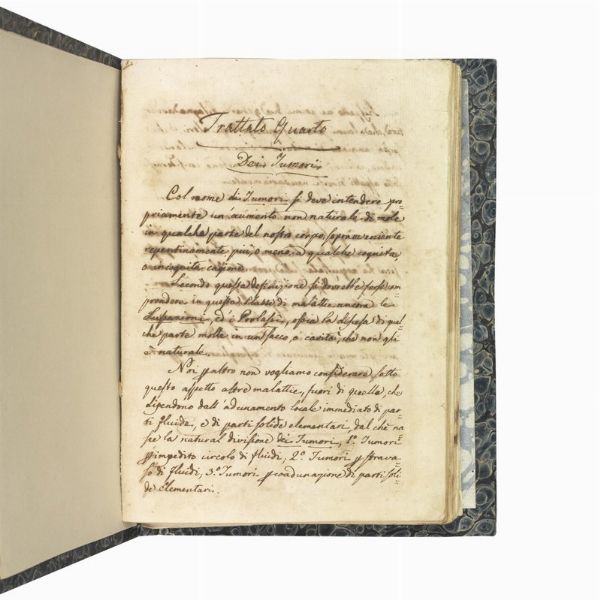 Trattato Quarto
Dei Tumori
Col nome di Tumori si deve intendere pro
priamente un aumento non naturale di mole
in qualche parte del nostro corpo, sopravveniente
repentinamente più, o meno, a qualche cognita,
o incognita cagione.
Secondo questa definizione si dovrebbe com
prendere in questa Classe di malattie ancora le
Lussazioni, ed i Prolassi, ossia la discesa di qual
che parte molle in un sacco, o cavità, che non gli
è naturale.
Noi peraltro non vogliamo considerare sotto
questo aspetto altre malattie, fuori di quelle, che
dipendono dall'adunamento locale immediato di par
ti fluide, e di parti solide elementari, dal che na
sce la natural divisione dei Tumori, 1.º Tumori
p impedito circolo di fluidi, 2.º Tumori p strava
so di fluidi, 3.º Tumori p coadunazione di parti soli
de elementari.